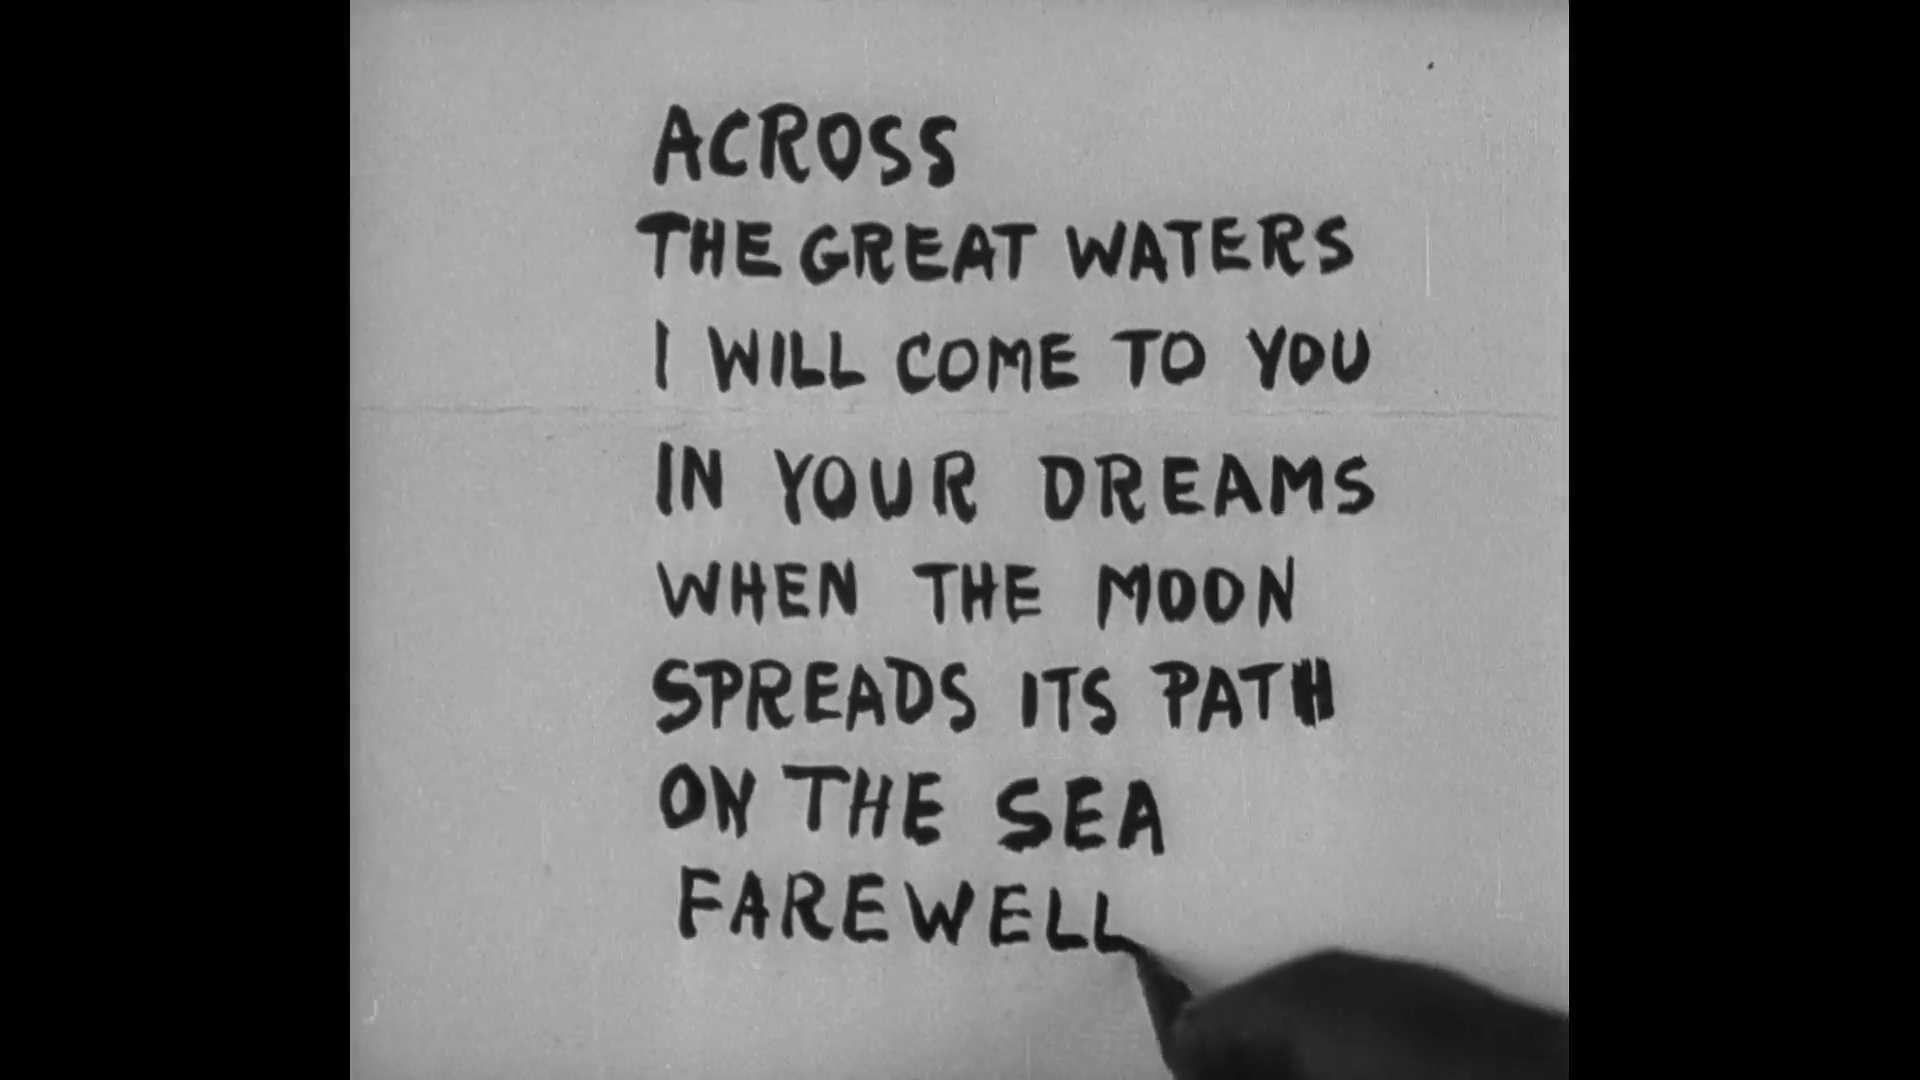 ACROSS
THE GREAT WATERS
I WILL COME TO YOU
IN YOUR DREAMS
WHEN THE MOON
SPREADS ITS PATH
ON THE SEA
FAREWELL